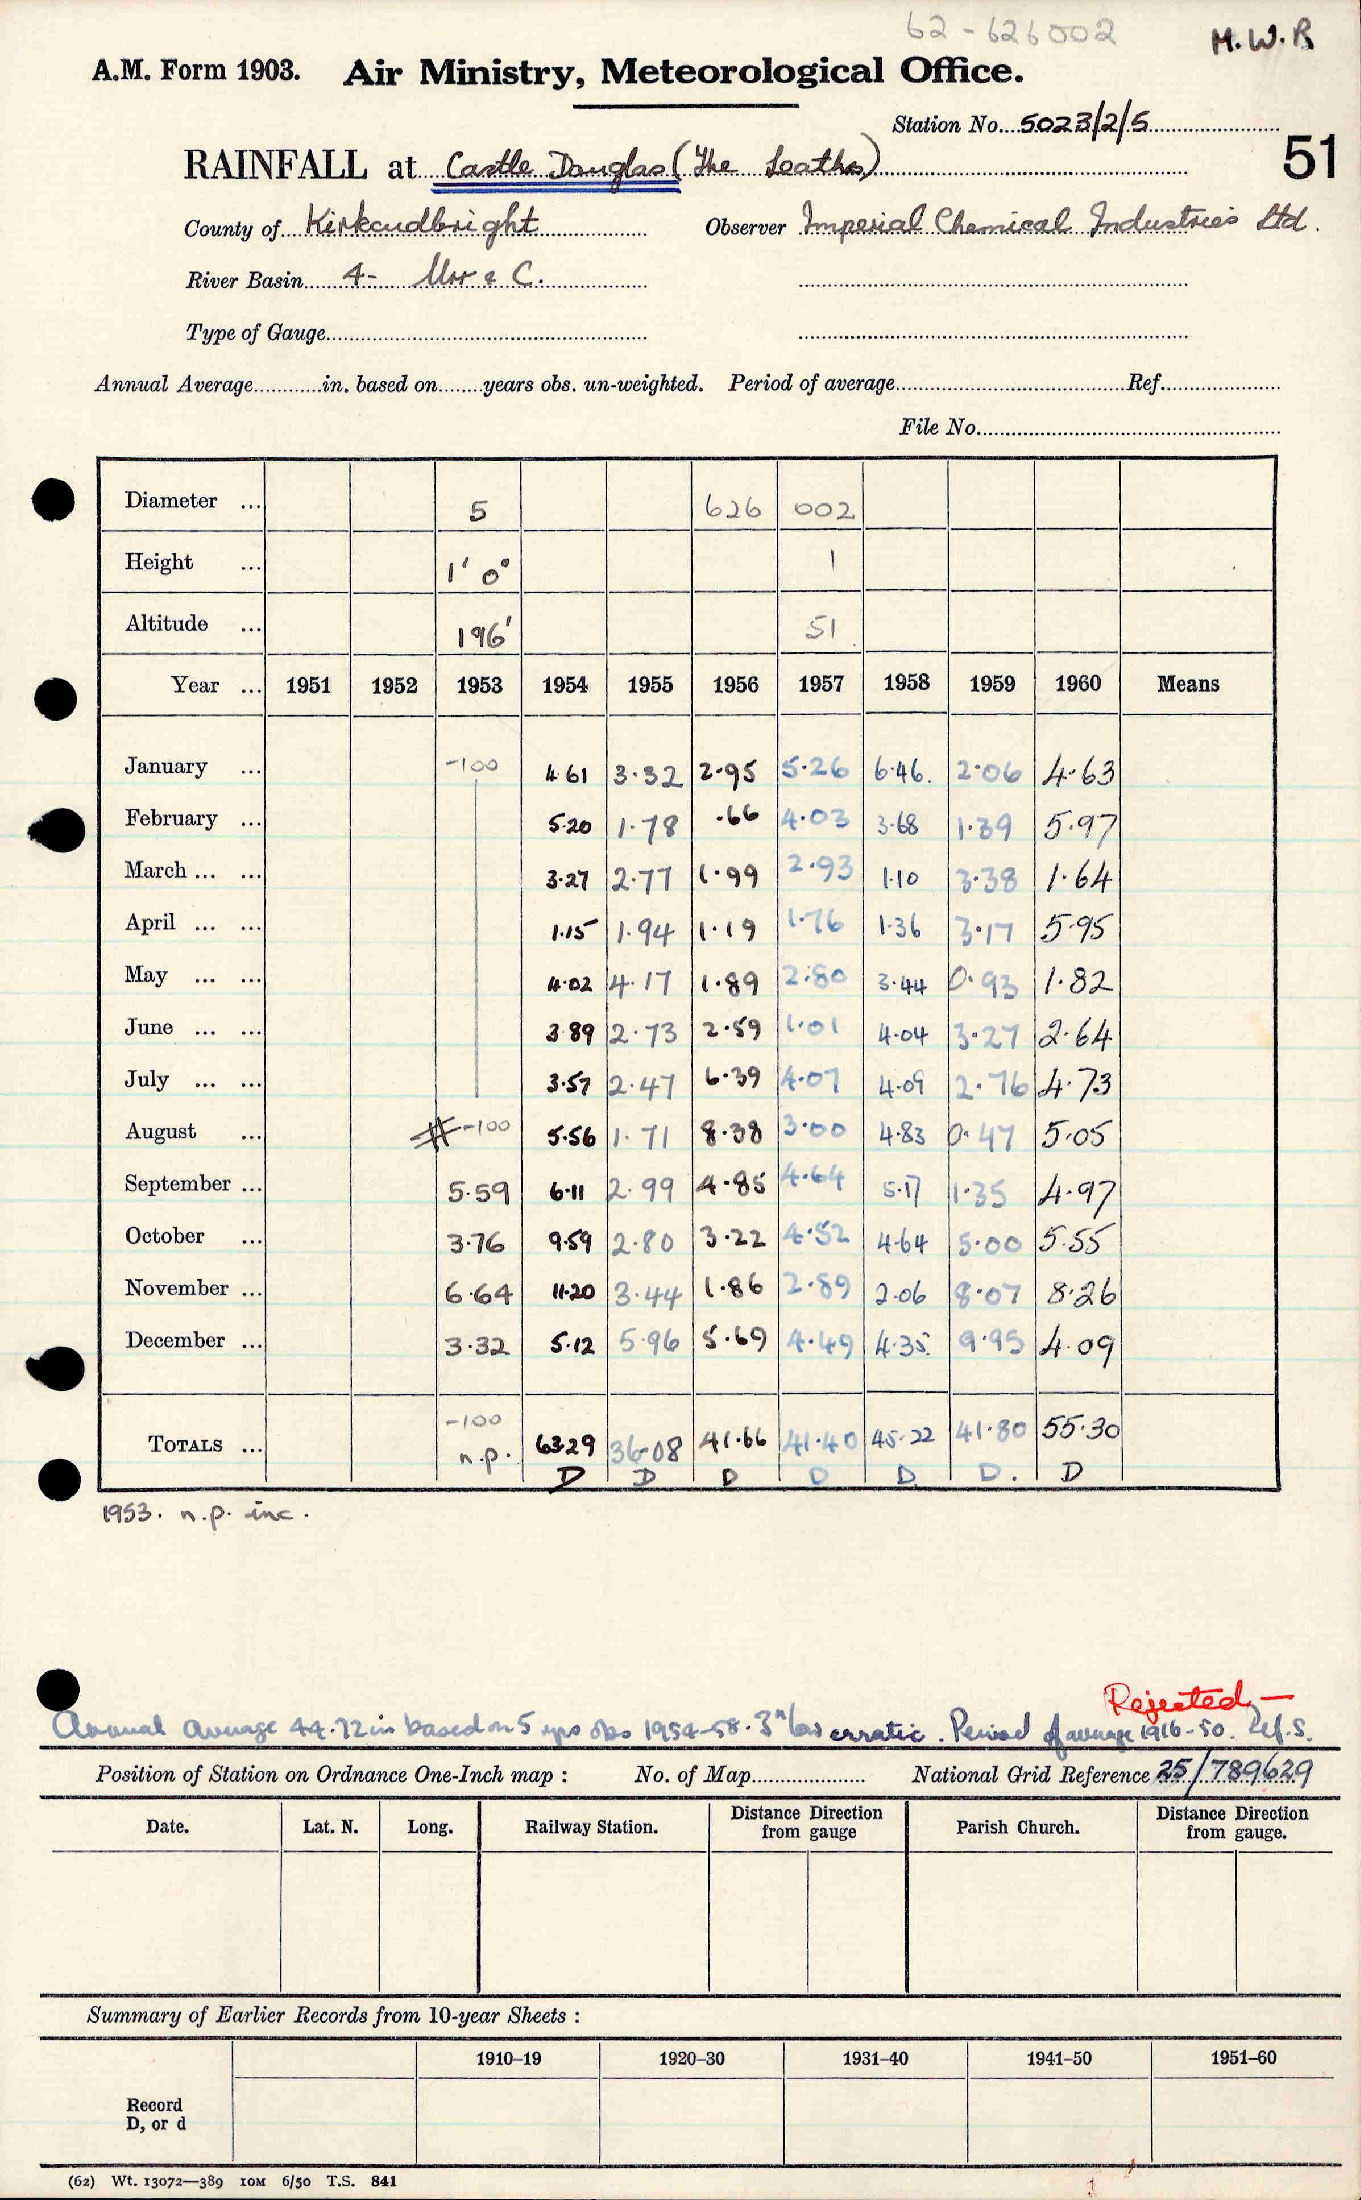 62-626002
M.W.R
A.M. Form 1903. Air Ministry, Meteorological Office.
Station No. 5023/2/5
51
RAINFALL at Castle Douglas (The Leaths)
County of Kirkcudbright Observer Imperial Chemical Industries Ltd.
River Basin 4- Urr & C.
Type of Gauge
Annual Average in. based on years obs. un-weighted. Period of average Ref.
File No.
Diameter ... 5 626 002
Height ... 1' 0" 1
Altitude ... 196' 51
Year ... 1951 1952 1953 1954 1955 1956 1957 1958 1959 1960 Means
January ... -100 4.61 3.32 2.95 5.26 6.46. 2.06 4.63
February ... 5.20 1.78 .66 4.03 3.68 1.39 5.97
March ... ... 3.27 2.77 1.99 2.93 1.10 3.38 1.64
April ... ... 1.15 1.94 1.19 1.76 1.36 3.17 5.95
May ... ... 4.02 4.17 1.89 2.80 3.44 0.93 1.82
June ... ... 3.89 2.73 2.59 1.01 4.04 3.27 2.64
July ... ... 3.57 2.47 6.39 4.07 4.09 2.76 4.73
August ... # -100 5.56 1.71 8.38 3.00 4.83 0.47 5.05
September ... 5.59 6.11 2.99 4.85 4.64 5.17 1.35 4.97
October ... 3.76 9.59 2.80 3.22 4.52 4.64 5.00 5.55
November ... 6.64 11.20 3.44 1.86 2.89 2.06 8.07 8.26
December ... 3.32 5.12 5.96 5.69 4.49 4.35. 9.95 4.09
-100
TOTALS ... n.p. 63.29 36.08 41.66 41.40 45.22 41.80 55.30
D D D D D D. D
1953. n.p. inc.
Rejected —
Annual average 44.72 in based on 5 yrs obs 1954-58. erratic. Period of average 1916-50. Ref. S.
Position of Station on Ordnance One-Inch map : No. of Map National Grid Reference 25/789629
Date. Lat. N. Long. Railway Station. Distance Direction from gauge Parish Church. Distance Direction from gauge.
Summary of Earlier Records from 10-year Sheets :
1910–19 1920–30 1931–40 1941–50 1951–60
Record
D, or d
(62) Wt. 13072—389 10M 6/50 T.S. 841